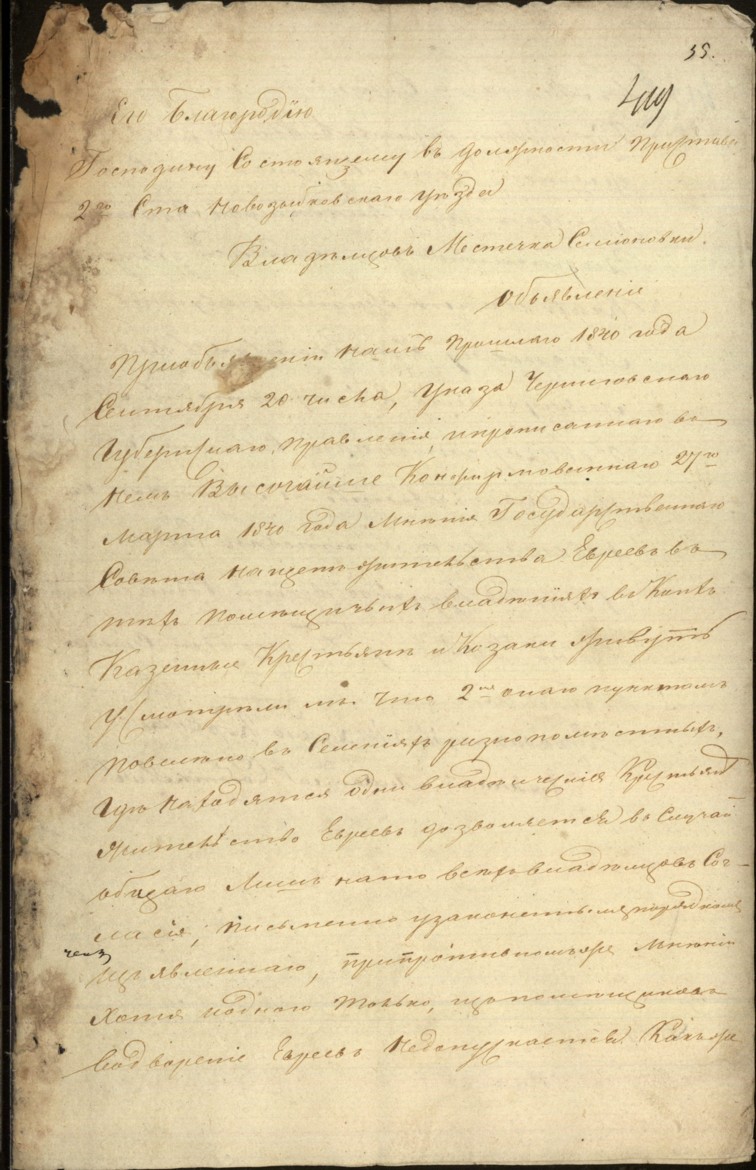 35.
419
Его Благородію
Господину Состоящему въ должности Пристава
2го Ста Новозыбковскаго уезда
Владѣльцовъ Местечка Семіоновки.
Объявленіе
При объявленіи намъ прошлаго 1840 года
Сентября 20 числа, указа Черниговскаго
Губернскаго правленія, и прописаннаго въ
немъ Высочайше Конфирмованнаго 27го
марта 1840 года мненія Государственнаго
Совѣта на щетъ жительства Евреевъ въ
тѣхъ помещичьихъ владѣніяхъ въ коихъ
Казенные Крестьяне и Козаки живутъ
Усмотрели мы что 2мъ онаго пунктомъ
повелено въ Селеніяхъ разнопоместныхъ,
гдѣ находятся одни владѣлческіе Крестьяне
жительство Евреевъ дозволяется въ случаѣ
общаго лишъ на то всѣхъ владѣльцовъ Сог-
ласія, письменно узаконеннымъ порядкомъ
изъявленнаго, при противномъ же мненіи
хотя одного только, изъ помещиковъ
водвореніе Евреевъ недопускается какъ же